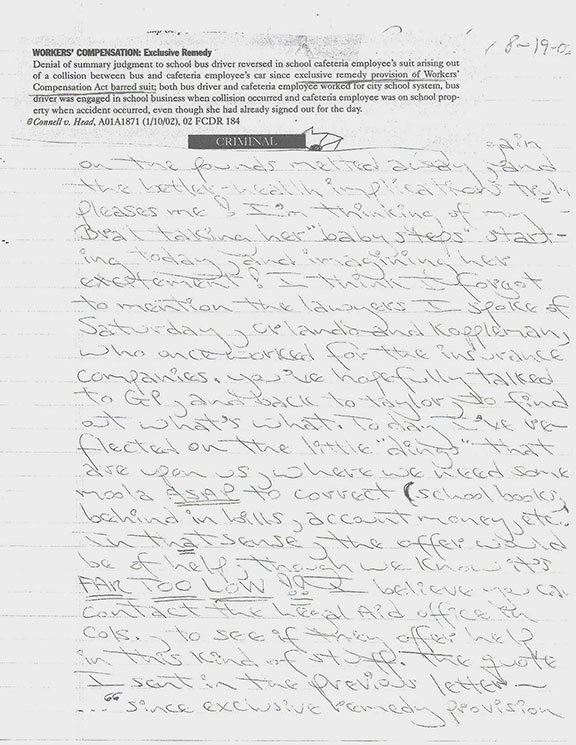 8-19-0
WORKERS' COMPENSATION: Exclusive Remedy
Denial of summary judgment to school bus driver reversed in school cafeteria employee's suit arising out
of a collision between bus and cafeteria employee's car since exclusive remedy provision of Workers'
Compensation Act barred suit; both bus driver and cafeteria employee worked for city school system, bus
driver was engaged in school business when collision occurred and cafeteria employee was on school prop-
erty when accident occurred, even though she had already signed out for the day.
@Connell v. Head, A01A1871 (1/10/02), 02 FCDR 184
CRIMINAL
gain
on the pounds melted away, and
the better-health implications truly
pleases me! I'm thinking of my
Brat taking her "baby steps" start-
ing today and imagining her
excitement! I think I forgot
to mention the lawyers I spoke of
Saturday, Orlando and Koppleman,
who once worked for the insurance
companies. You've hopefully talked
to GP, and back to Taylor, to find
out what's what. Today I've re-
flected on the little "dings" that
are upon us, where we need some
moola ASAP to correct (school books,
behind in bills, account money, etc.
In that sense, the offer would
be of help, though we know it's
FAR TOO LOW!! I believe you can
contact the Legal Aid office in
Cols., to see if they offer help
in this kind of stuff. The quote
I sent in the previous letter—
"... since exclusive remedy provision